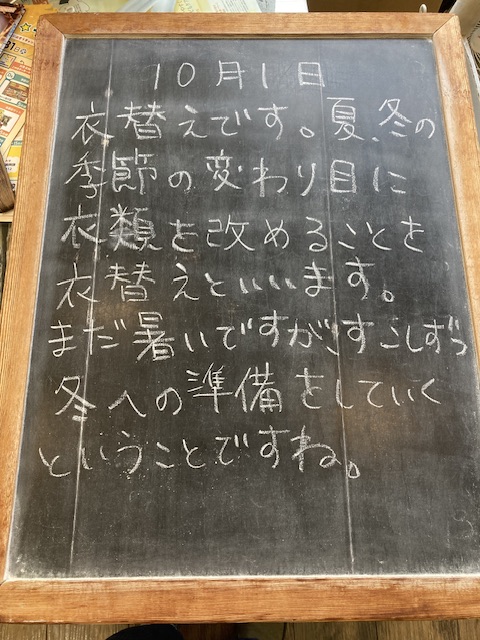 10月1日
衣替えです。夏、冬の
季節の変わり目に
衣類を改めることを
衣替えといいます。
まだ暑いですがすこしずつ
冬への準備をしていく
ということですね。